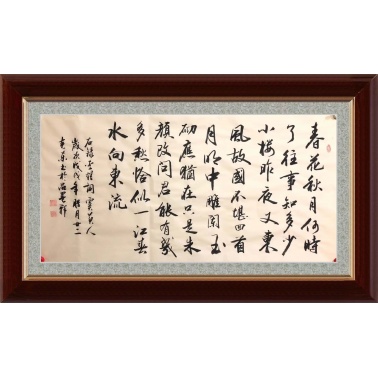 春花秋月何時
了往事知多少
小樓昨夜又東
風故國不堪回首
月明中雕闌玉
砌應猶在只是朱
顏改問君能有幾
多愁恰似一江春
水向東流
右錄李煜詞虞美人
歲次戊戌年臘月廿二